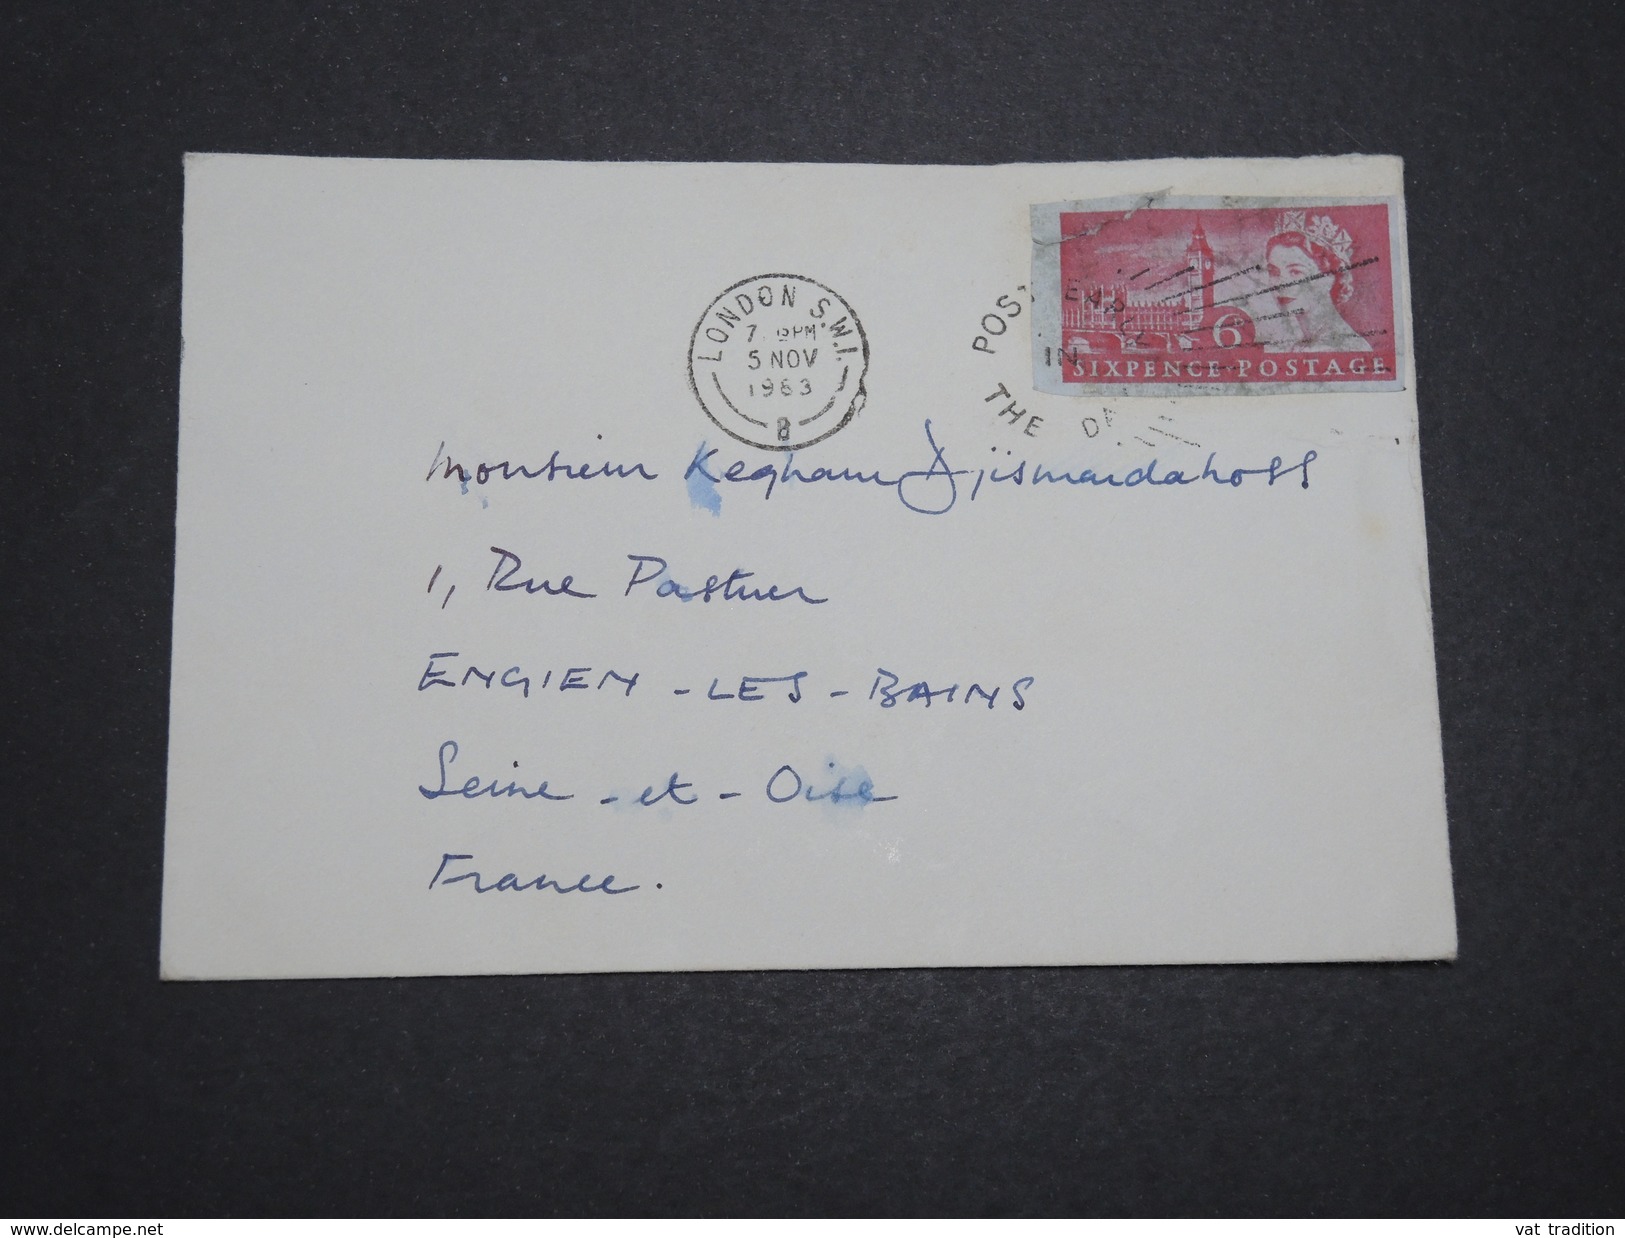 LONDON S.W.1.
7. 15PM
5 NOV
1963
8
POST EARLY
IN
THE DAY
6
SIXPENCE POSTAGE
Monsieur Kegham Djismardahoss
1, Rue Pasteur
ENGIEN - LES - BAINS
Seine - et - Oise
France.
© delcampe.net
vat tradition